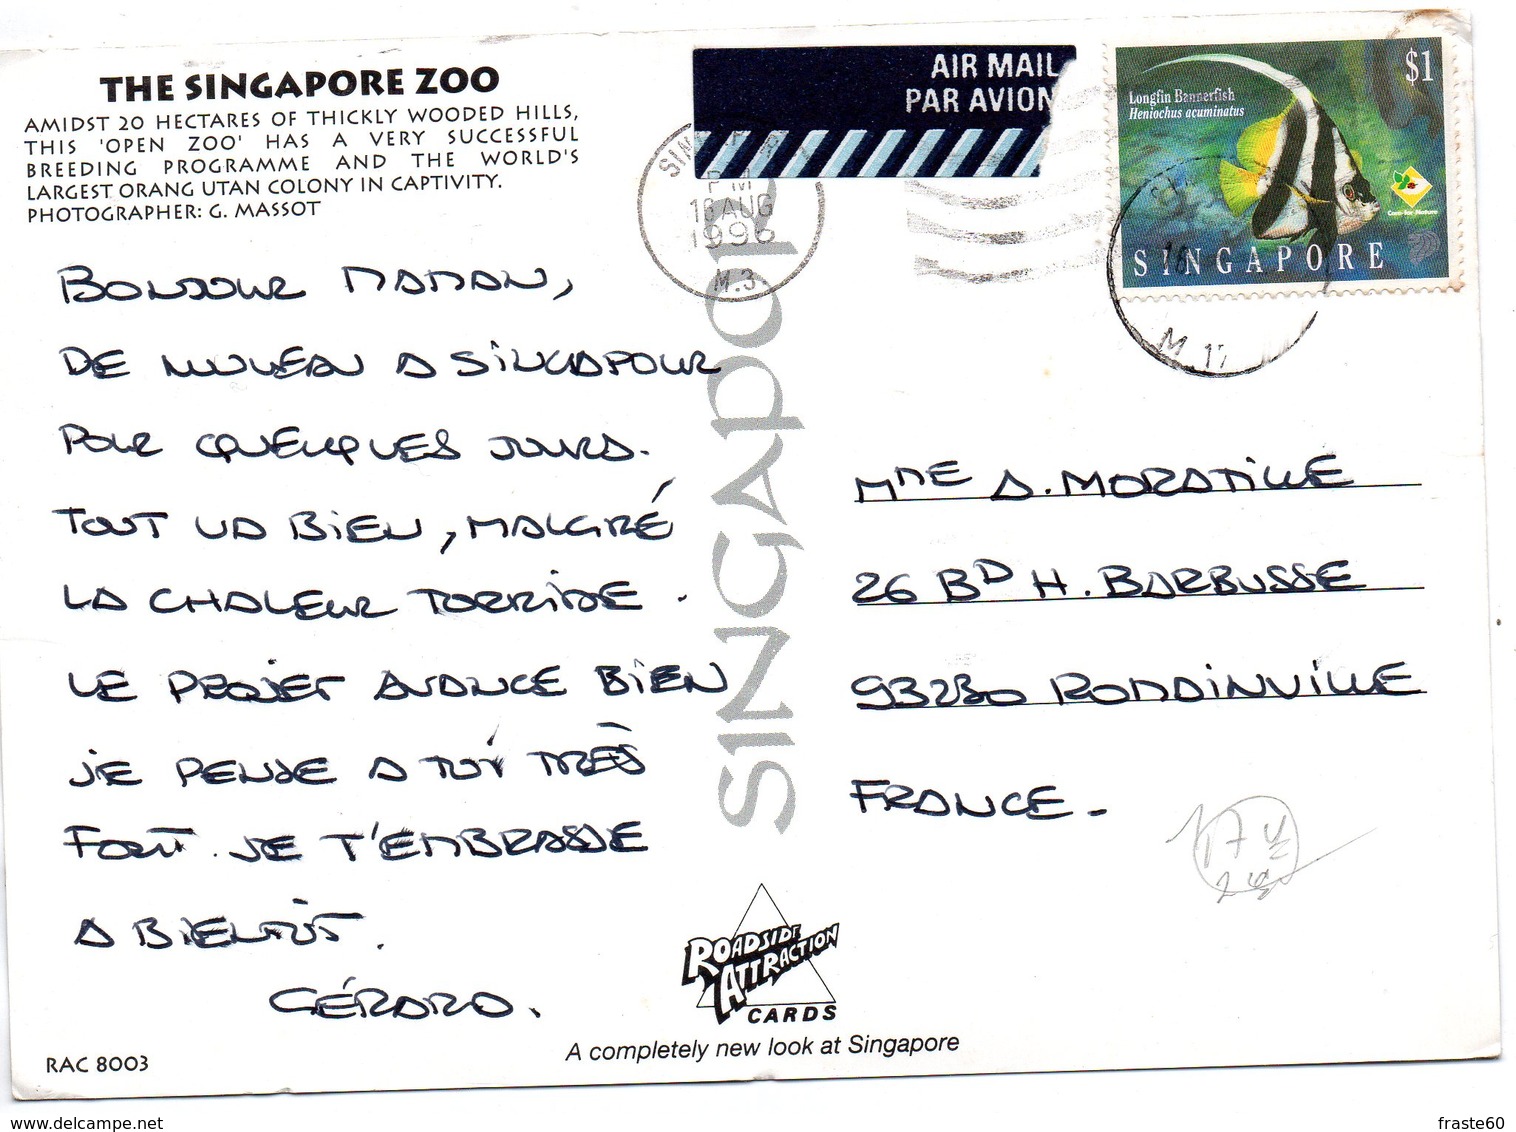 THE SINGAPORE ZOO
AMIDST 20 HECTARES OF THICKLY WOODED HILLS,
THIS 'OPEN ZOO' HAS A VERY SUCCESSFUL
BREEDING PROGRAMME AND THE WORLD'S
LARGEST ORANG UTAN COLONY IN CAPTIVITY.
PHOTOGRAPHER: G. MASSOT
AIR MAIL
PAR AVION
PM
16 AUG
1996
M.3
$1
Longfin Bannerfish
Heniochus acuminatus
Care for Nature
SINGAPORE
M 17
BONJOUR MAMAN,
DE NOUVEAU A SINGAPOUR
POUR QUELQUES JOURS.
TOUT VA BIEN, MALGRÉ
LA CHALEUR TORRIDE.
LE PROJET AVANCE BIEN
JE PENSE A TOI TRÈS
FORT. JE T'EMBRASSE
A BIENTÔT.
GÉRARD.
SINGAPORE
MME A. MORATILLE
26 BD H. BARBUSSE
93230 ROMAINVILLE
FRANCE.
ROADSIDE
ATTRACTION
CARDS
A completely new look at Singapore
RAC 8003
www.delcampe.net
fraste60